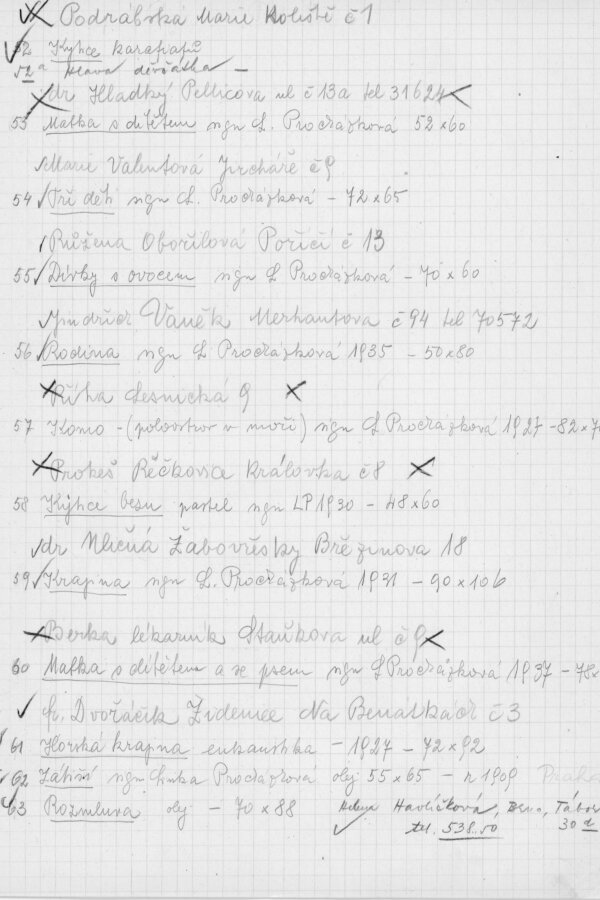 Podrábská Marie Koliště č 1
52 Kytice karafiátů
52a Hlava děvčátka –
dr Hladký Pellicova ul č 13a tel 31624
53 Matka s dítětem sgn L. Procházková 52 x 60
Marie Valentová Jircháře č 9
54 Tři děti sgn L. Procházková – 72 x 65
Růžena Obořilová Poříčí č 13
55 Dívky s ovocem sgn L Procházková – 70 x 60
Jindřich Vaněk Merhautova č 94 tel 70572
56 Rodina sgn L Procházková 1935 – 50 x 80
Říha Lesnická 9
57 Komo – (poloostrov v moři) sgn L Procházková 1927 – 82 x
Prokeš Řečkovice Královka č 8
58 Kytice besu pastel sgn LP 1930 – 48 x 60
dr Mlčná Žabovřesky Březinova 18
59 Krajina sgn L. Procházková 1931 – 90 x 106
Berka lékárník Staňkova ul č 9
60 Matka s dítětem a se psem sgn L Procházková 1937 – 78 x
Dvořáčik Židenice Na Benátkách č 3
61 Horská krajina enkaustika – 1927 – 72 x 92
62 Zátiší sgn Linka Procházková olej 55 x 65 – r 1909 Praha
63 Rozmluva olej – 70 x 88 Helena Havlíčková, Brno, Tábor
tel. 538.50 30 a